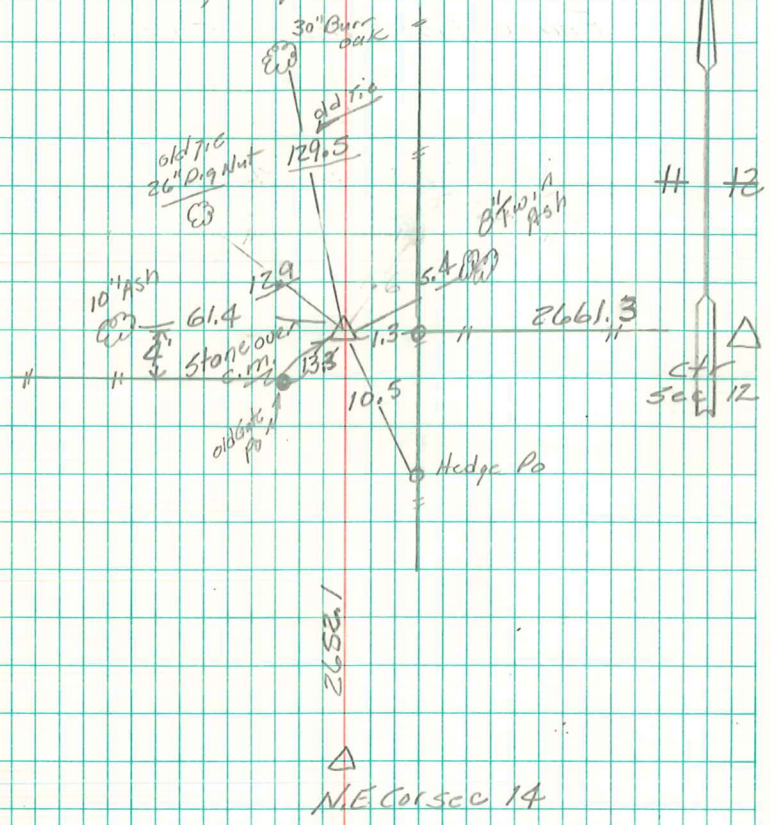 30" Burr
oak
old Tie
129.5
old Tie
26" Pig Nut
8" Twin
Ash
11 12
5.4
10" Ash
129
61.4
4'
Stone over
c.m.
13.5
1.3
2661.3
ctr
sec 12
10.5
old Gate
Po
Hedge Po
2652.1
N.E Cor sec 14